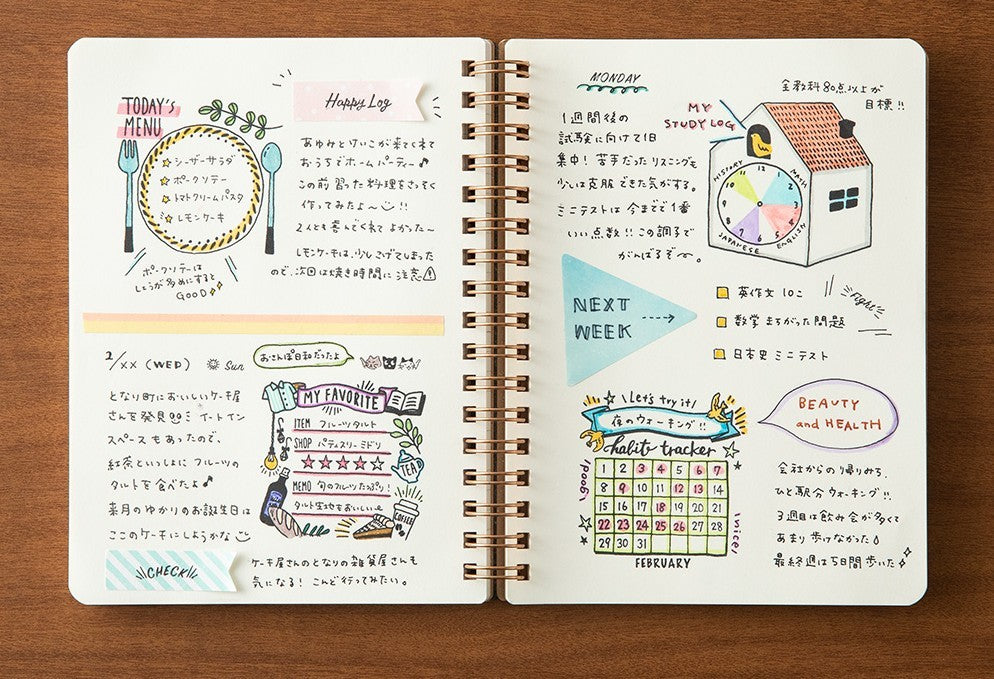 TODAY'S
MENU
シーザーサラダ
ポークソテー
トマトクリームパスタ
レモンケーキ
ポークソテーは
しょうが多めにすると
GOOD
Happy Log
あゆみとけいこが来てくれて
おうちでホームパーティー♪
この前習った料理をさっそく
作ってみたよ〜!!
2人とも喜んでくれてよかった〜
レモンケーキは、少しこげてしまった
ので、次回は焼き時間に注意
2/XX (WED)
Sun
おさんぽ日和だったよ
となり町においしいケーキ屋
さんを発見 イートイン
スペースもあったので、
紅茶といっしょにフルーツの
タルトを食べたよ♪
来月のゆかりのお誕生日は
ここのケーキにしようかな
MY FAVORITE
ITEM フルーツタルト
SHOP パティスリーミドリ
★★★★☆
MEMO 旬のフルーツたっぷり!
タルト生地もおいしい
TEA
COFFEE
CHECK!
ケーキ屋さんのとなりの雑貨屋さんも
気になる! こんど行ってみたい。
MONDAY
1週間後の
試験に向けて1日
集中! 苦手だったリスニングも
少しは克服できた気がする。
ミニテストは今までで1番
いい点数!! この調子で
がんばるぞ〜。
MY
STUDY LOG
全教科80点以上が
目標!!
HISTORY
MATH
JAPANESE
ENGLISH
12
3
6
9
NEXT
WEEK
英作文 10こ
数学 まちがった問題
日本史 ミニテスト
Fight!
Let's try it!
夜のウォーキング!!
habit tracker
good!
1 2 3 4 5 6 7
8 9 10 11 12 13 14
15 16 17 18 19 20 21
22 23 24 25 26 27 28
29 30 31
nice!
FEBRUARY
BEAUTY
and HEALTH
会社からの帰りみち、
ひと駅分ウォーキング!!
3週目は飲み会が多くて
あまり歩けなかった
最終週は5日間歩いた